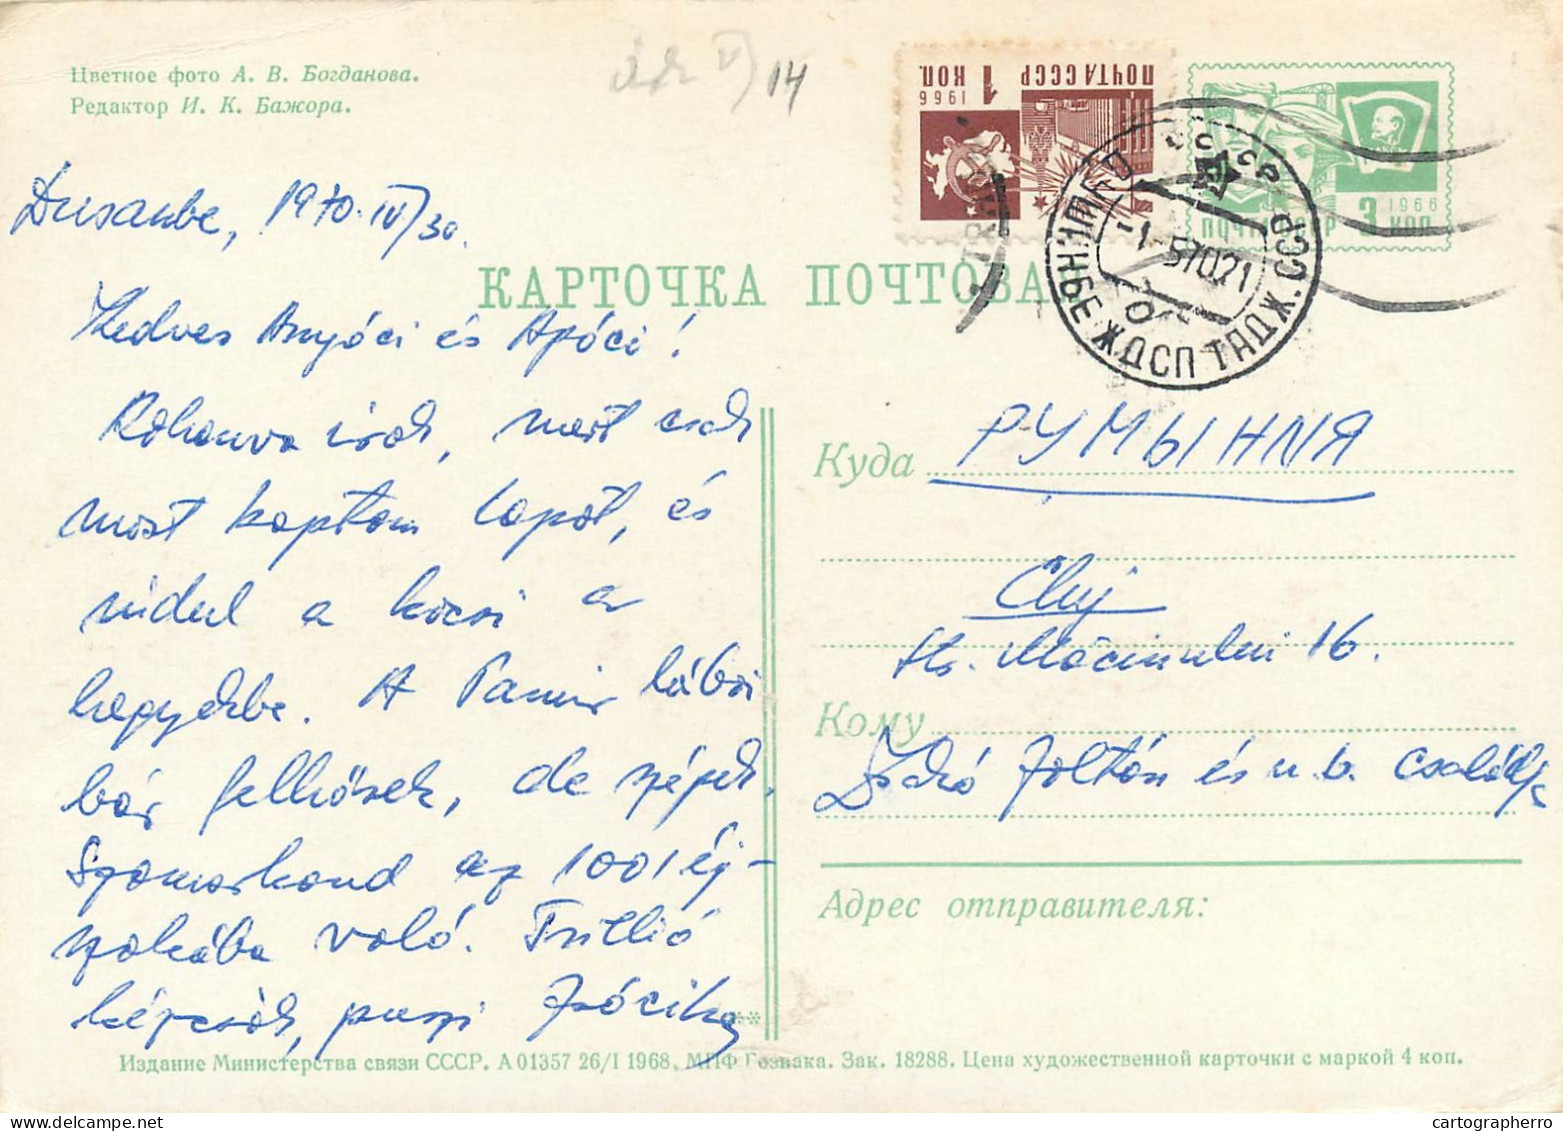 Цветное фото А. В. Богданова.
Редактор И. К. Бажора.
14
ПОЧТА СССР
1966
1 КОП.
1966
ПОЧТА СССР 3 КОП
ДУШАНБЕ ЖДСП ТАДЖ. ССР
КАРТОЧКА ПОЧТОВА
Dusanbe, 1970.IV/30.
Kedves Anyóci és Apóci!
Rohanva írok, mert csak
most kaptam lapot, és
indul a kocsi a
hegyekbe. A Pamir lábai
bár felhősek, de szépek.
Szamarkand az 1001 éj-
szakába való. Trillió
képcsók, puszi Izócika
Куда РУМЫНИЯ
Cluj
str. Măcinului 16.
Кому
Izsó Zoltán és n. b. családja
Адрес отправителя:
Издание Министерства связи СССР. А 01357 26/I 1968. МПФ Гознака. Зак. 18288. Цена художественной карточки с маркой 4 коп.
cartographerro